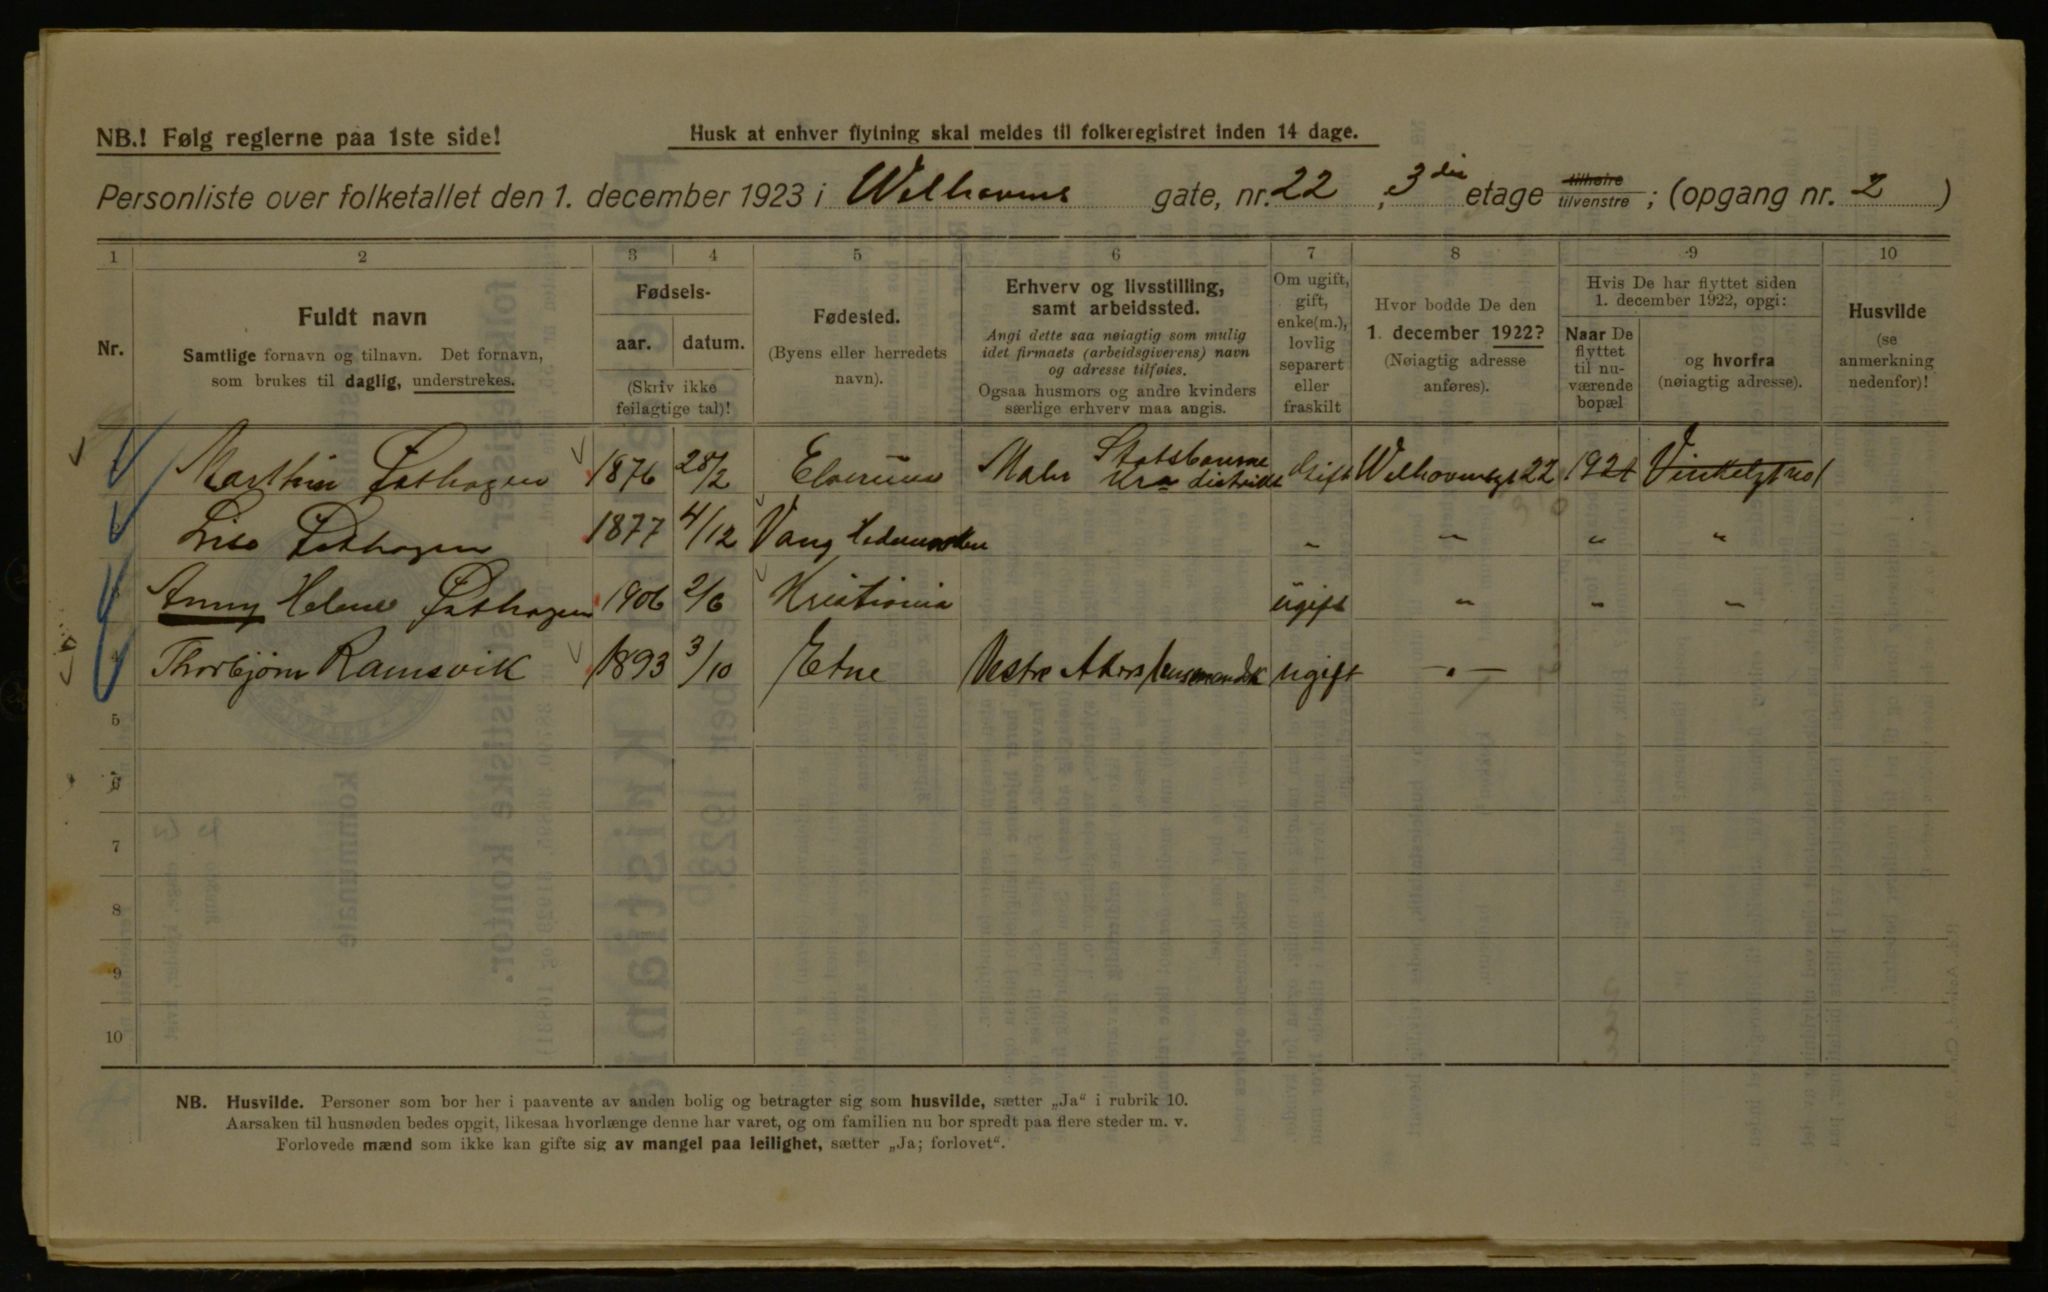 NB.! Følg reglerne paa 1ste side!
Husk at enhver flytning skal meldes til folkeregistret inden 14 dage.
Personliste over folketallet den 1. december 1923 i Welhavens gate, nr. 22, 3die etage tilhøire tilvenstre ; (opgang nr. 2 )
1 2 3 4 5 6 7 8 9 10
Nr.
Fuldt navn
Samtlige fornavn og tilnavn. Det fornavn,
som brukes til daglig, understrekes.
Fødsels-
aar. datum.
(Skriv ikke
feilagtige tal)!
Fødested.
(Byens eller herredets
navn).
Erhverv og livsstilling,
samt arbeidssted.
Angi dette saa nøiagtig som mulig
idet firmaets (arbeidsgiverens) navn
og adresse tilføies.
Ogsaa husmors og andre kvinders
særlige erhverv maa angis.
Om ugift,
gift,
enke(m.),
lovlig
separert
eller
fraskilt
Hvor bodde De den
1. december 1922?
(Nøiagtig adresse
anføres).
Hvis De har flyttet siden
1. december 1922, opgi:
Naar De
flyttet
til nu-
værende
bopæl
og hvorfra
(nøiagtig adresse).
Husvilde
(se
anmerkning
nedenfor)!
Marthin Østhagen 1876 28/2 Elverum Maler Statsbanerne Kra distrikt Gift Welhavensgt 22 1921 Vinkelgt no 1
Lise Østhagen 1877 4/12 Vang Hedemarken " " " "
Anny Helene Østhagen 1906 2/6 Kristiania ugift " " "
4 Thorbjørn Ramsvik 1893 3/10 Etne Vestre Akers lensmandsk ugift — " —
5
6
7
8
9
10
NB. Husvilde. Personer som bor her i paavente av anden bolig og betragter sig som husvilde, sætter „Ja“ i rubrik 10.
Aarsaken til husnøden bedes opgit, likesaa hvorlænge denne har varet, og om familien nu bor spredt paa flere steder m. v.
Forlovede mænd som ikke kan gifte sig av mangel paa leilighet, sætter „Ja; forlovet“.